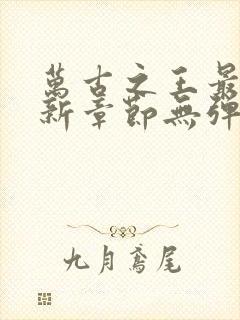 萬古之王最
新章節無彈
九月鳶尾